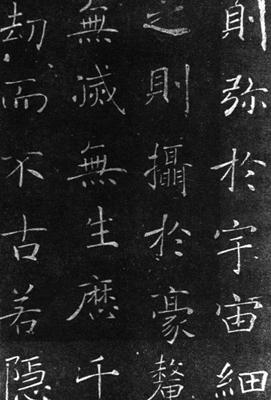 則弥於宇宙細
之則攝於豪釐
無滅無生歷千
劫而不古若隱